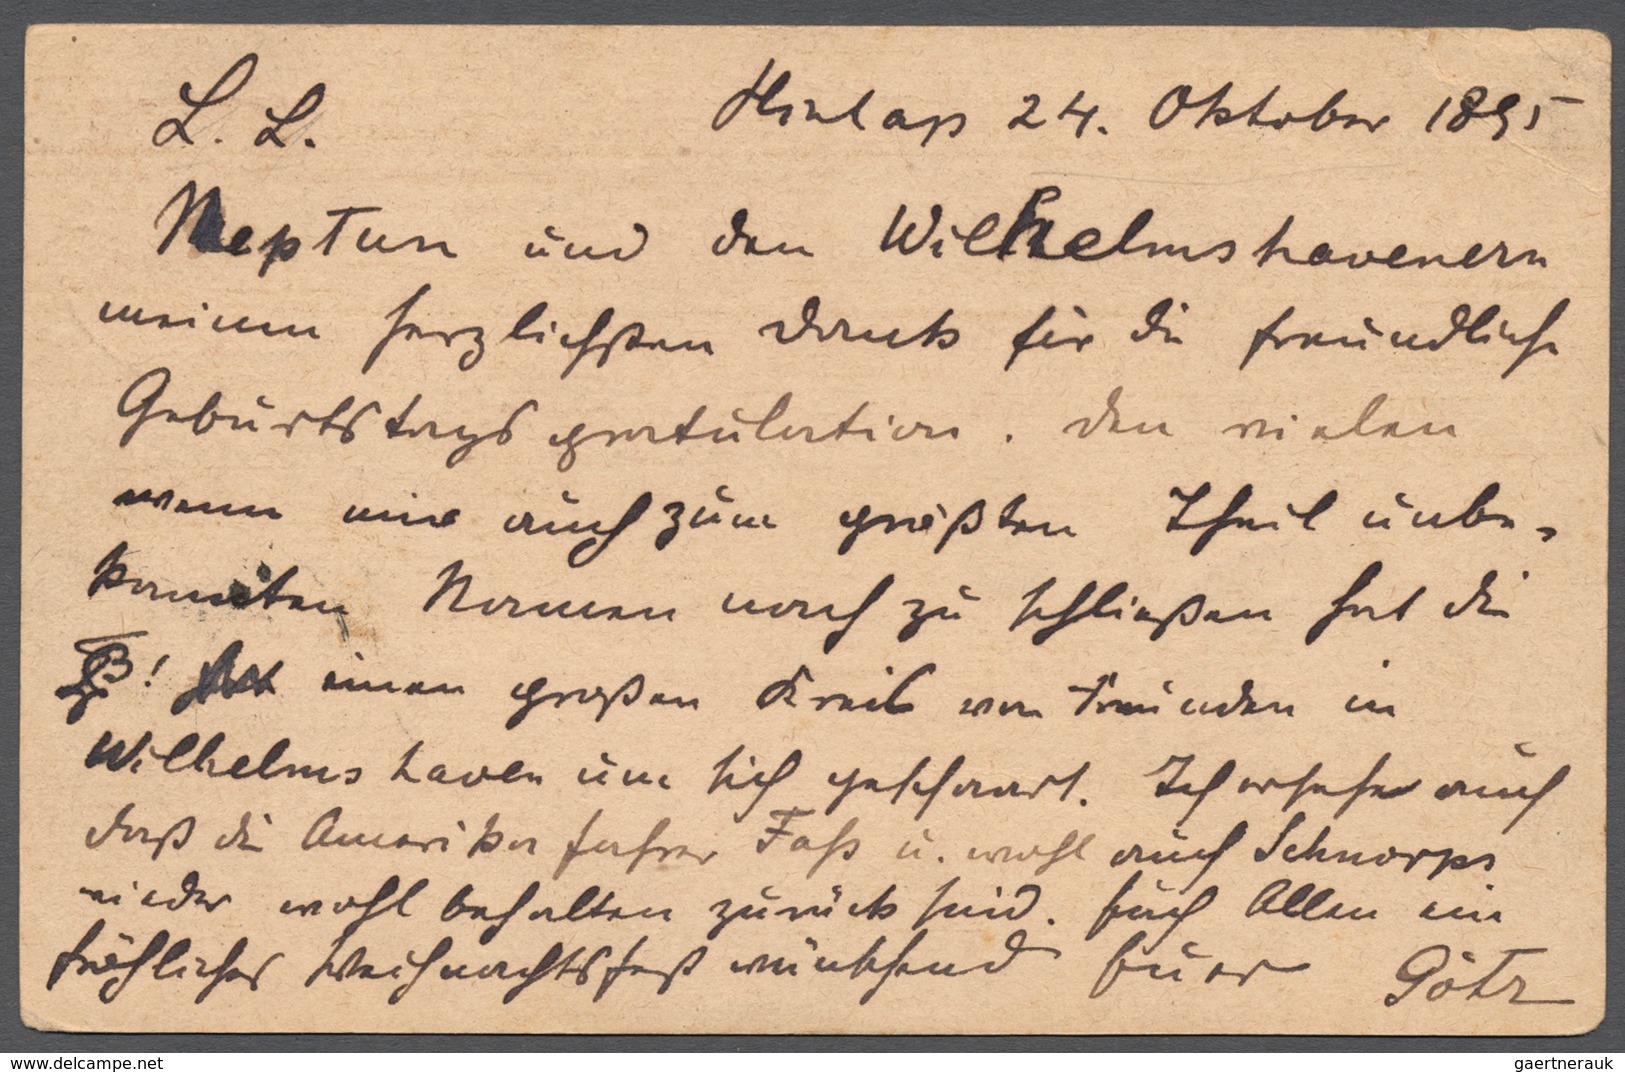 L. L. 24. Oktober 1895
Neptun und den Wilhelmshavenern
meinen herzlichsten Dank für die freundliche
Geburtstagsgratulation. Den vielen
wenn mir auch zum größten Theil unbe-
kannten Namen nach zu schließen hat die
! einen großen Kreis von Freunden in
Wilhelmshaven um sich geschaart. Ich ersehe auch
daß die Amerikafahrer Faß u. wohl auch Schnorps
wieder wohl behalten zurück sind. Euch Allen ein
fröhliches Weihnachtsfest wünschend Euer Götz
gaertnerauk